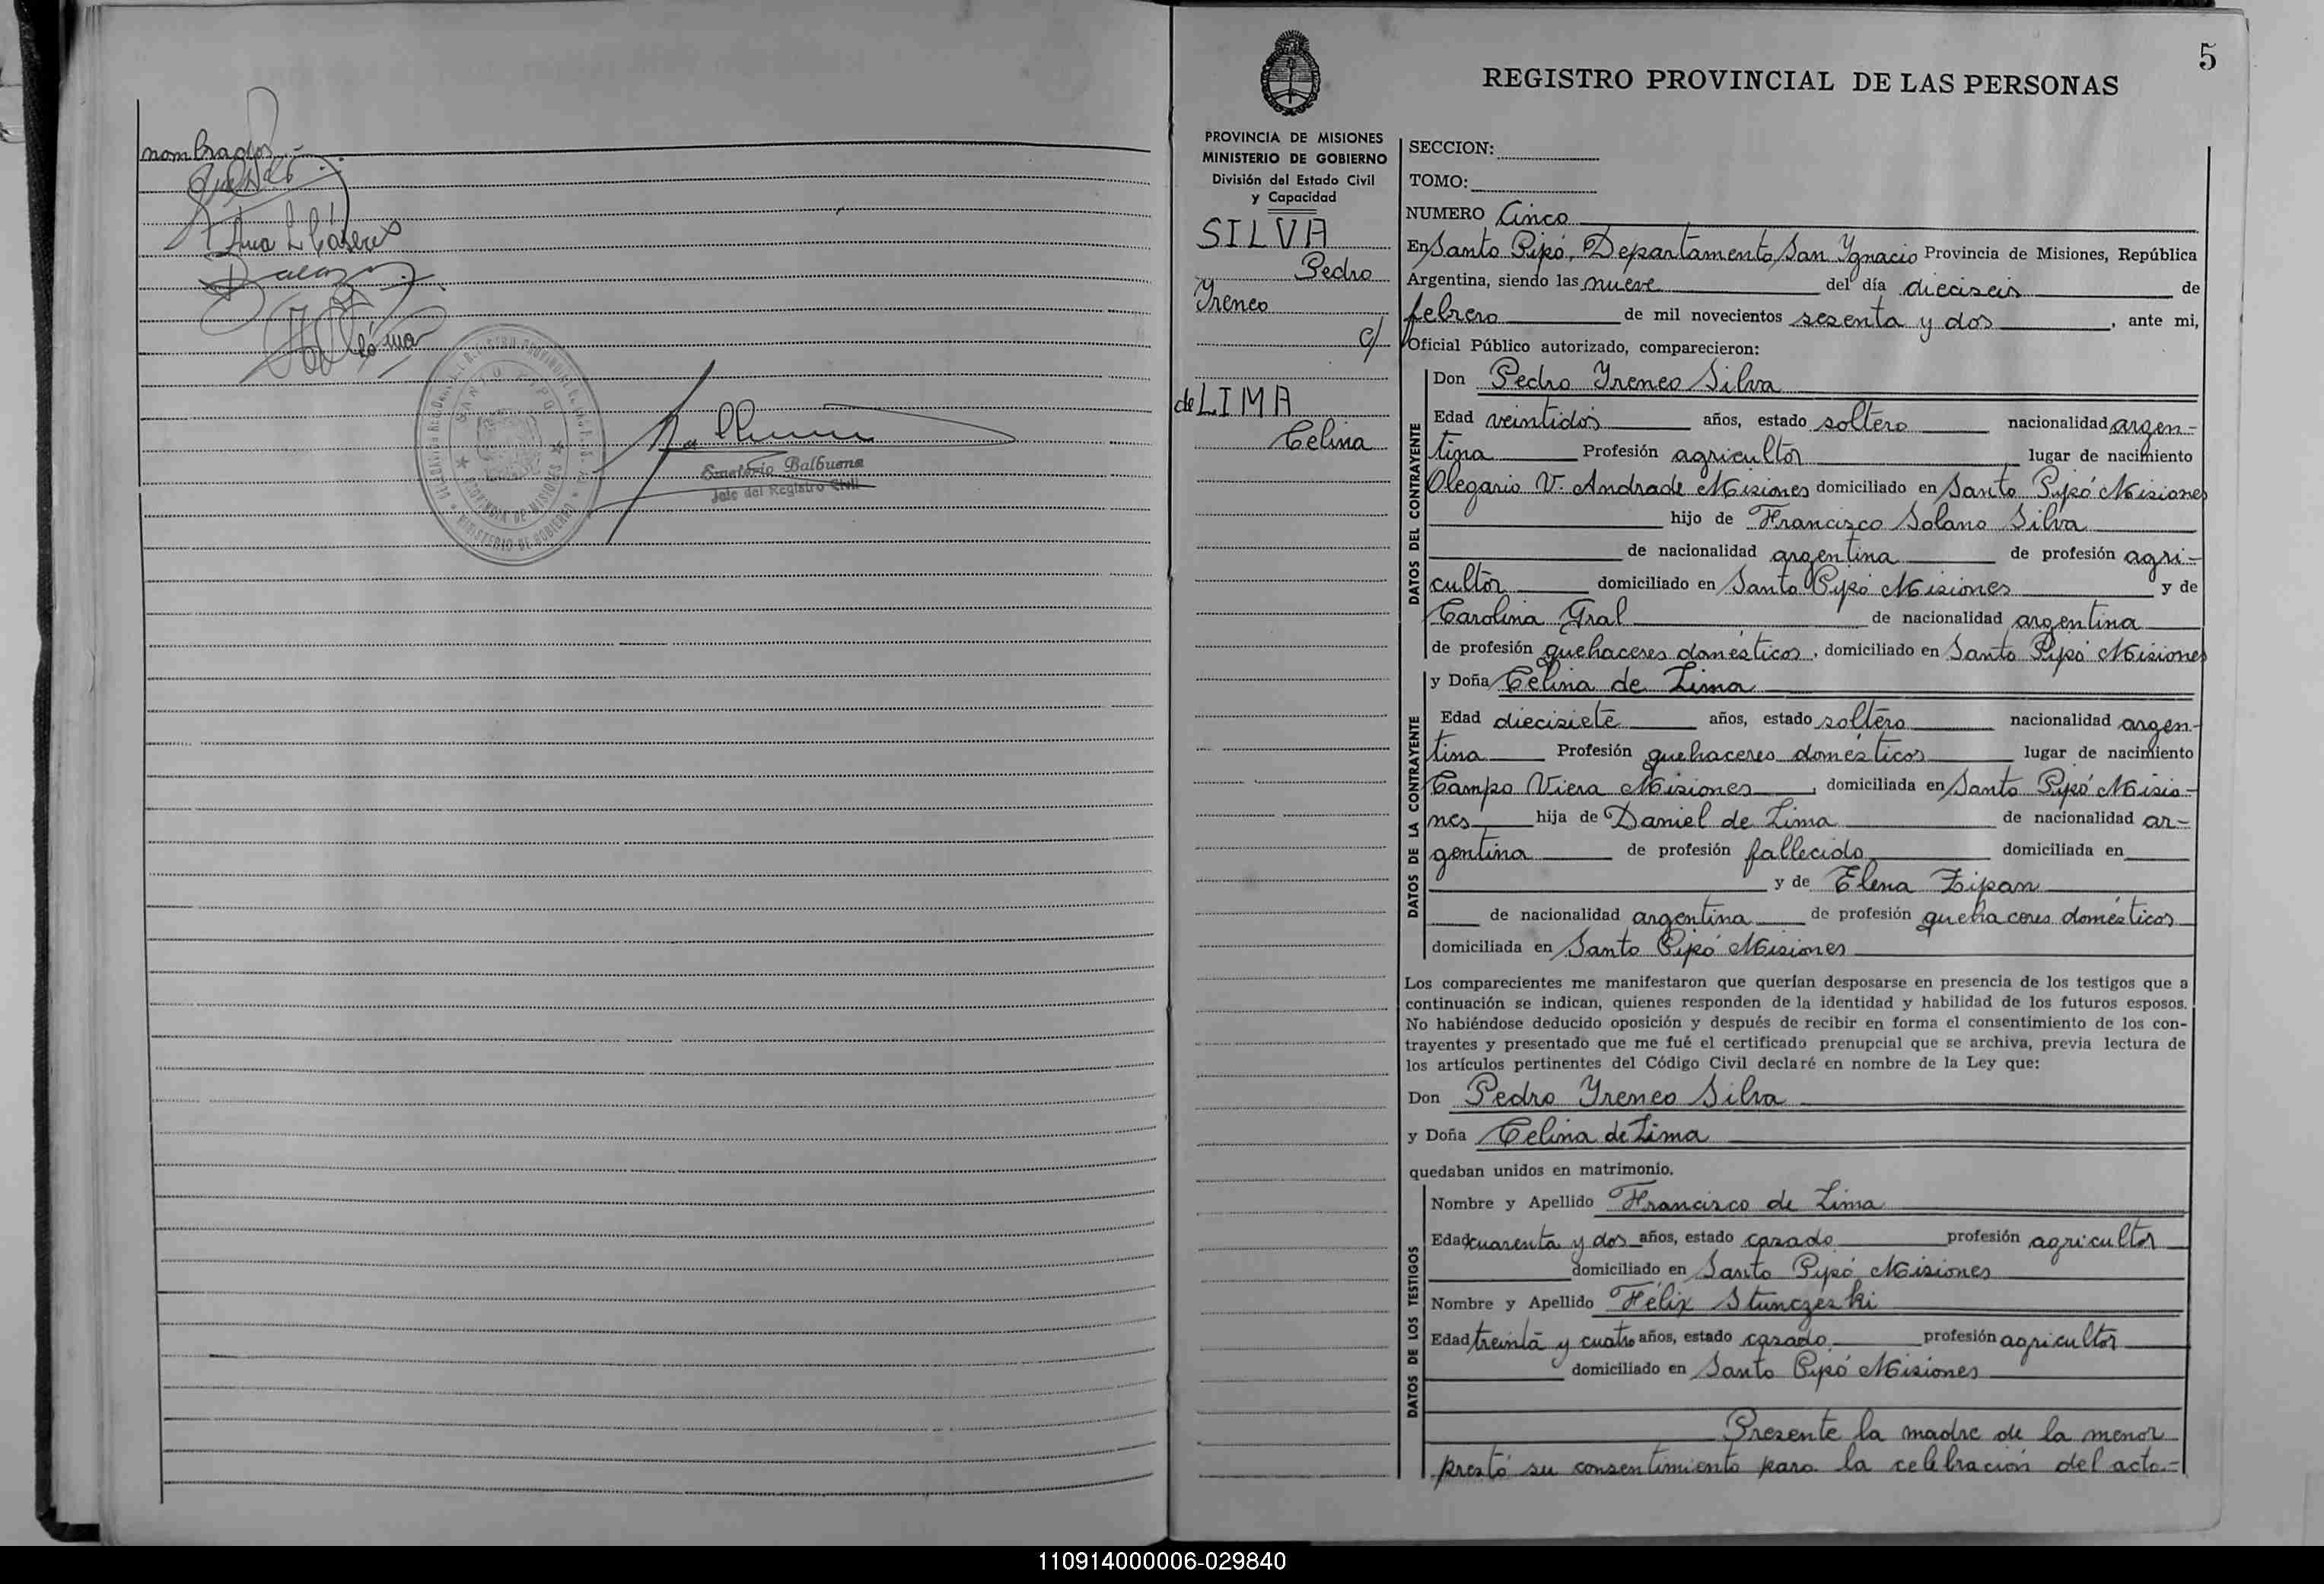 nombrados.-
Ana L. Cáseres
SANTO PIPO
PROVINCIA DE MISIONES
MINISTERIO DE GOBIERNO
Emeterio Balbuena
Jefe del Registro Civil
5
REGISTRO PROVINCIAL DE LAS PERSONAS
PROVINCIA DE MISIONES
MINISTERIO DE GOBIERNO
División del Estado Civil
y Capacidad
SILVA
Pedro
Yreneo
c/
de LIMA
Celina
SECCION:
TOMO:
NUMERO Cinco
En Santo Pipó, Departamento San Ygnacio Provincia de Misiones, República
Argentina, siendo las nueve del día dieciseis de
febrero de mil novecientos sesenta y dos, ante mi,
Oficial Público autorizado, comparecieron:
DATOS DEL CONTRAYENTE
Don Pedro Yreneo Silva
Edad veintidós años, estado soltero nacionalidad argen-
tina Profesión agricultor lugar de nacimiento
Olegario V. Andrade Misiones domiciliado en Santo Pipó Misiones
hijo de Francisco Solano Silva
de nacionalidad argentina de profesión agri-
cultor domiciliado en Santo Pipó Misiones y de
Carolina Gral de nacionalidad argentina
de profesión quehaceres domésticos, domiciliado en Santo Pipó Misiones
DATOS DE LA CONTRAYENTE
y Doña Celina de Lima
Edad diecisiete años, estado soltero nacionalidad argen-
tina Profesión quehaceres domésticos lugar de nacimiento
Campo Viera Misiones, domiciliada en Santo Pipó Misio-
nes hija de Daniel de Lima de nacionalidad ar-
gentina de profesión fallecido domiciliada en
y de Elena Zipan
de nacionalidad argentina de profesión quehaceres domésticos
domiciliada en Santo Pipó Misiones
Los comparecientes me manifestaron que querían desposarse en presencia de los testigos que a
continuación se indican, quienes responden de la identidad y habilidad de los futuros esposos.
No habiéndose deducido oposición y después de recibir en forma el consentimiento de los con-
trayentes y presentado que me fué el certificado prenupcial que se archiva, previa lectura de
los artículos pertinentes del Código Civil declaré en nombre de la Ley que:
Don Pedro Yreneo Silva
y Doña Celina de Lima
quedaban unidos en matrimonio.
DATOS DE LOS TESTIGOS
Nombre y Apellido Francisco de Lima
Edad cuarenta y dos años, estado casado profesión agricultor
domiciliado en Santo Pipó Misiones
Nombre y Apellido Félix Stunczeski
Edad treinta y cuatro años, estado casado profesión agricultor
domiciliado en Santo Pipó Misiones
Presente la madre de la menor
prestó su consentimiento para la celebración del acto.-
110914000006-029840